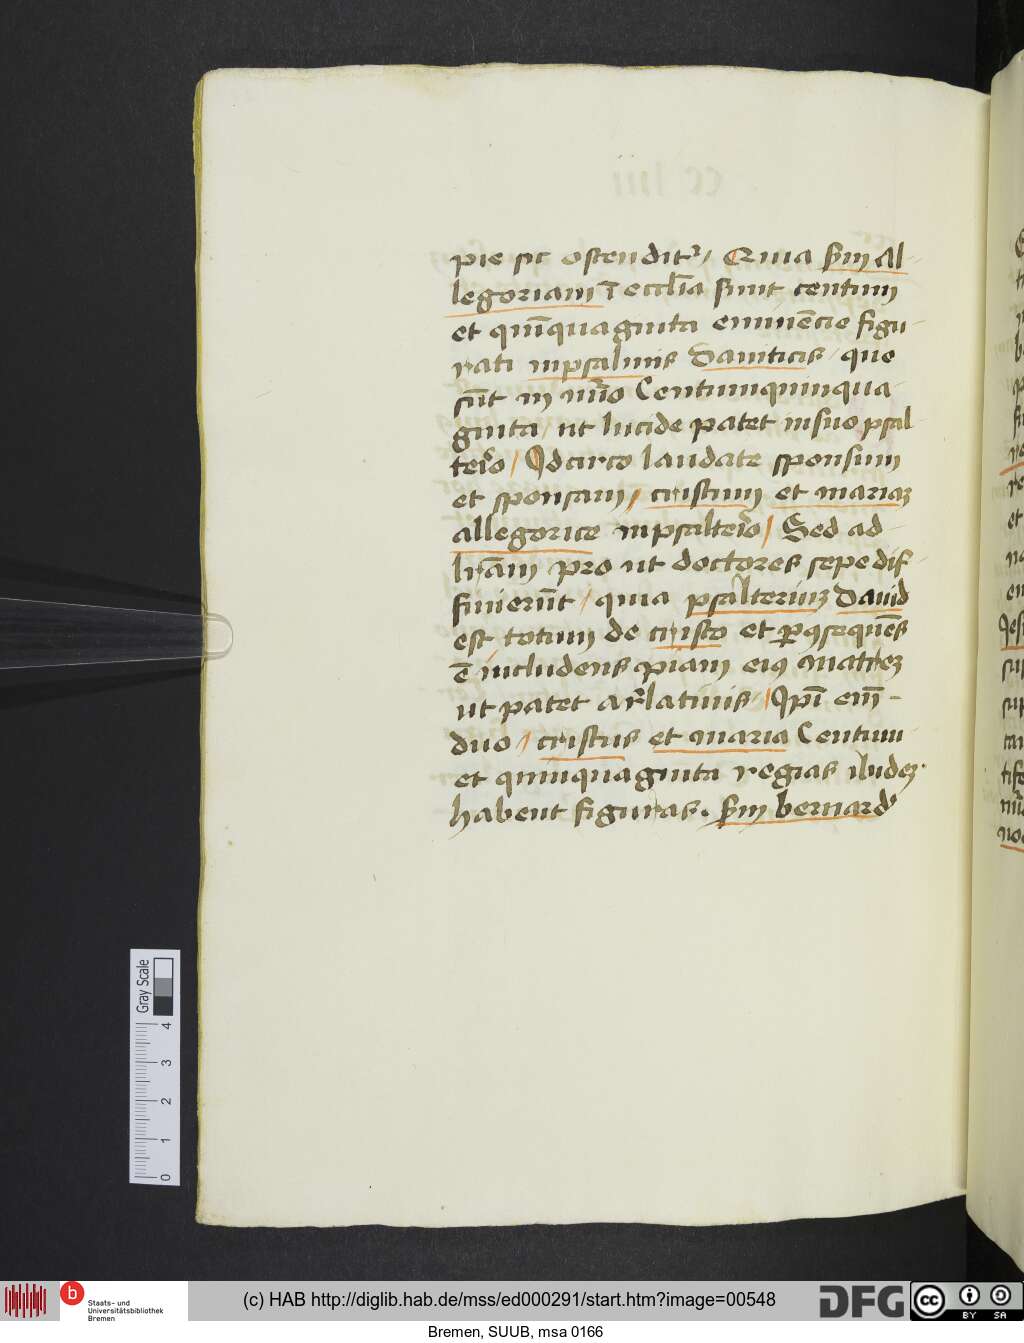 pie sic ostendit᷑ / Quia s̄m al-
legoriam ī eccl̄ia sunt centum
et qui̅quaginta eminēcie figu-
rati inpsalmis Dauiticis / que
sūt in nūo Centumquinqua-
ginta / ut lucide patet insuo psal-
teīo / Idcirco laudate sponsum
et sponsam / cristum et mariaꝫ
allegorice inpsalteīo / Sed ad
lr̄am pro ut doctores sepe dif-
finierūt / quia psalteriuꝫ Dauid
est totum de cristo et ꝑꝯsequēs
ē includens piam eiꝰ matreꝫ
ut patet
duo / cristus et maria Centum
et quinquaginta regias
habent figuras. s̄m bernard'
Gray Scale
0 1 2 3 4
b Staats- und
Universitätsbibliothek
Bremen
(c) HAB http://diglib.hab.de/mss/ed000291/start.htm?image=00548
DFG
cc BY SA
Bremen, SUUB, msa 0166